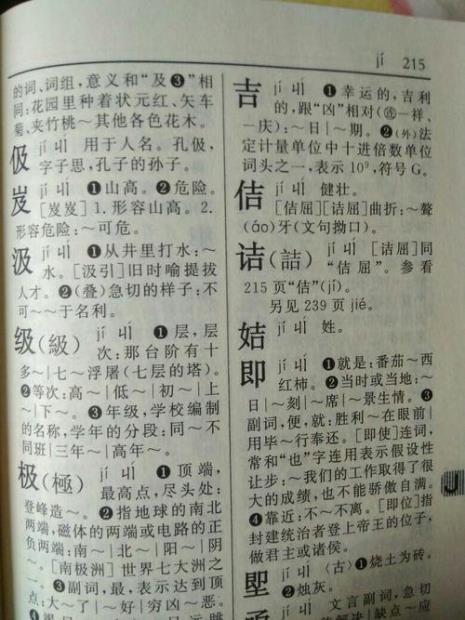 jí 215
的词、词组,意义和“及❸”相
同:花园里种着状元红、矢车
菊、夹竹桃～其他各色花木。
伋 jí ㄐㄧˊ 用于人名。孔伋,
字子思,孔子的孙子。
岌 jí ㄐㄧˊ ❶山高。❷危险。
[岌岌]1.形容山高。2.
形容危险:～可危。
汲 jí ㄐㄧˊ ❶从井里打水:～
水。[汲引]旧时喻提拔
人才。❷(叠)急切的样子:不
可～～于名利。
级(級) jí ㄐㄧˊ ❶层,层
次:那台阶有十
多～|七～浮屠(七层的塔)。
❷等次:高～|低～|初～|上
～|下～。❸年级,学校编制
的名称,学年的分段:同～不
同班|三年～|高年～。
极(極) jí ㄐㄧˊ ❶顶端,
最高点,尽头处:
登峰造～。❷指地球的南北
两端,磁体的两端或电路的正
负两端:南～|北～|阳～|阴
～。[南极洲]世界七大洲之
一。❸副词,最,表示达到顶
点:大～了|～好|穷凶～恶。
吉 jí ㄐㄧˊ ❶幸运的,吉利
的,跟“凶”相对(连一样、
一庆):～日|～期。❷(外)法
定计量单位中十进倍数单位
词头之一,表示10⁹,符号G。
佶 jí ㄐㄧˊ 健壮。
[佶屈][诘屈]曲折:～聱
(áo)牙(文句拗口)。
诘(詰) jí ㄐㄧˊ [诘屈]同
“佶屈”。参看
215页“佶”(jí)。
另见239页jié。
姞 jí ㄐㄧˊ 姓。
即 jí ㄐㄧˊ ❶就是:番茄～西
红柿。❷当时或当地:～
日|～刻|～席|～景生情。❸
副词,便,就:胜利～在眼前|
用毕～行奉还。[即使]连词,
常和“也”字连用表示假设性
让步:～我们的工作取得了很
大的成绩,也不能骄傲自满。
❹靠近:不～不离。[即位]指
封建统治者登上帝王的位子,
做君主或诸侯。
堲 jí ㄐㄧˊ 〈古〉❶烧土为砖。
❷烛灰。
jí ㄐㄧˊ 文言副词,急切